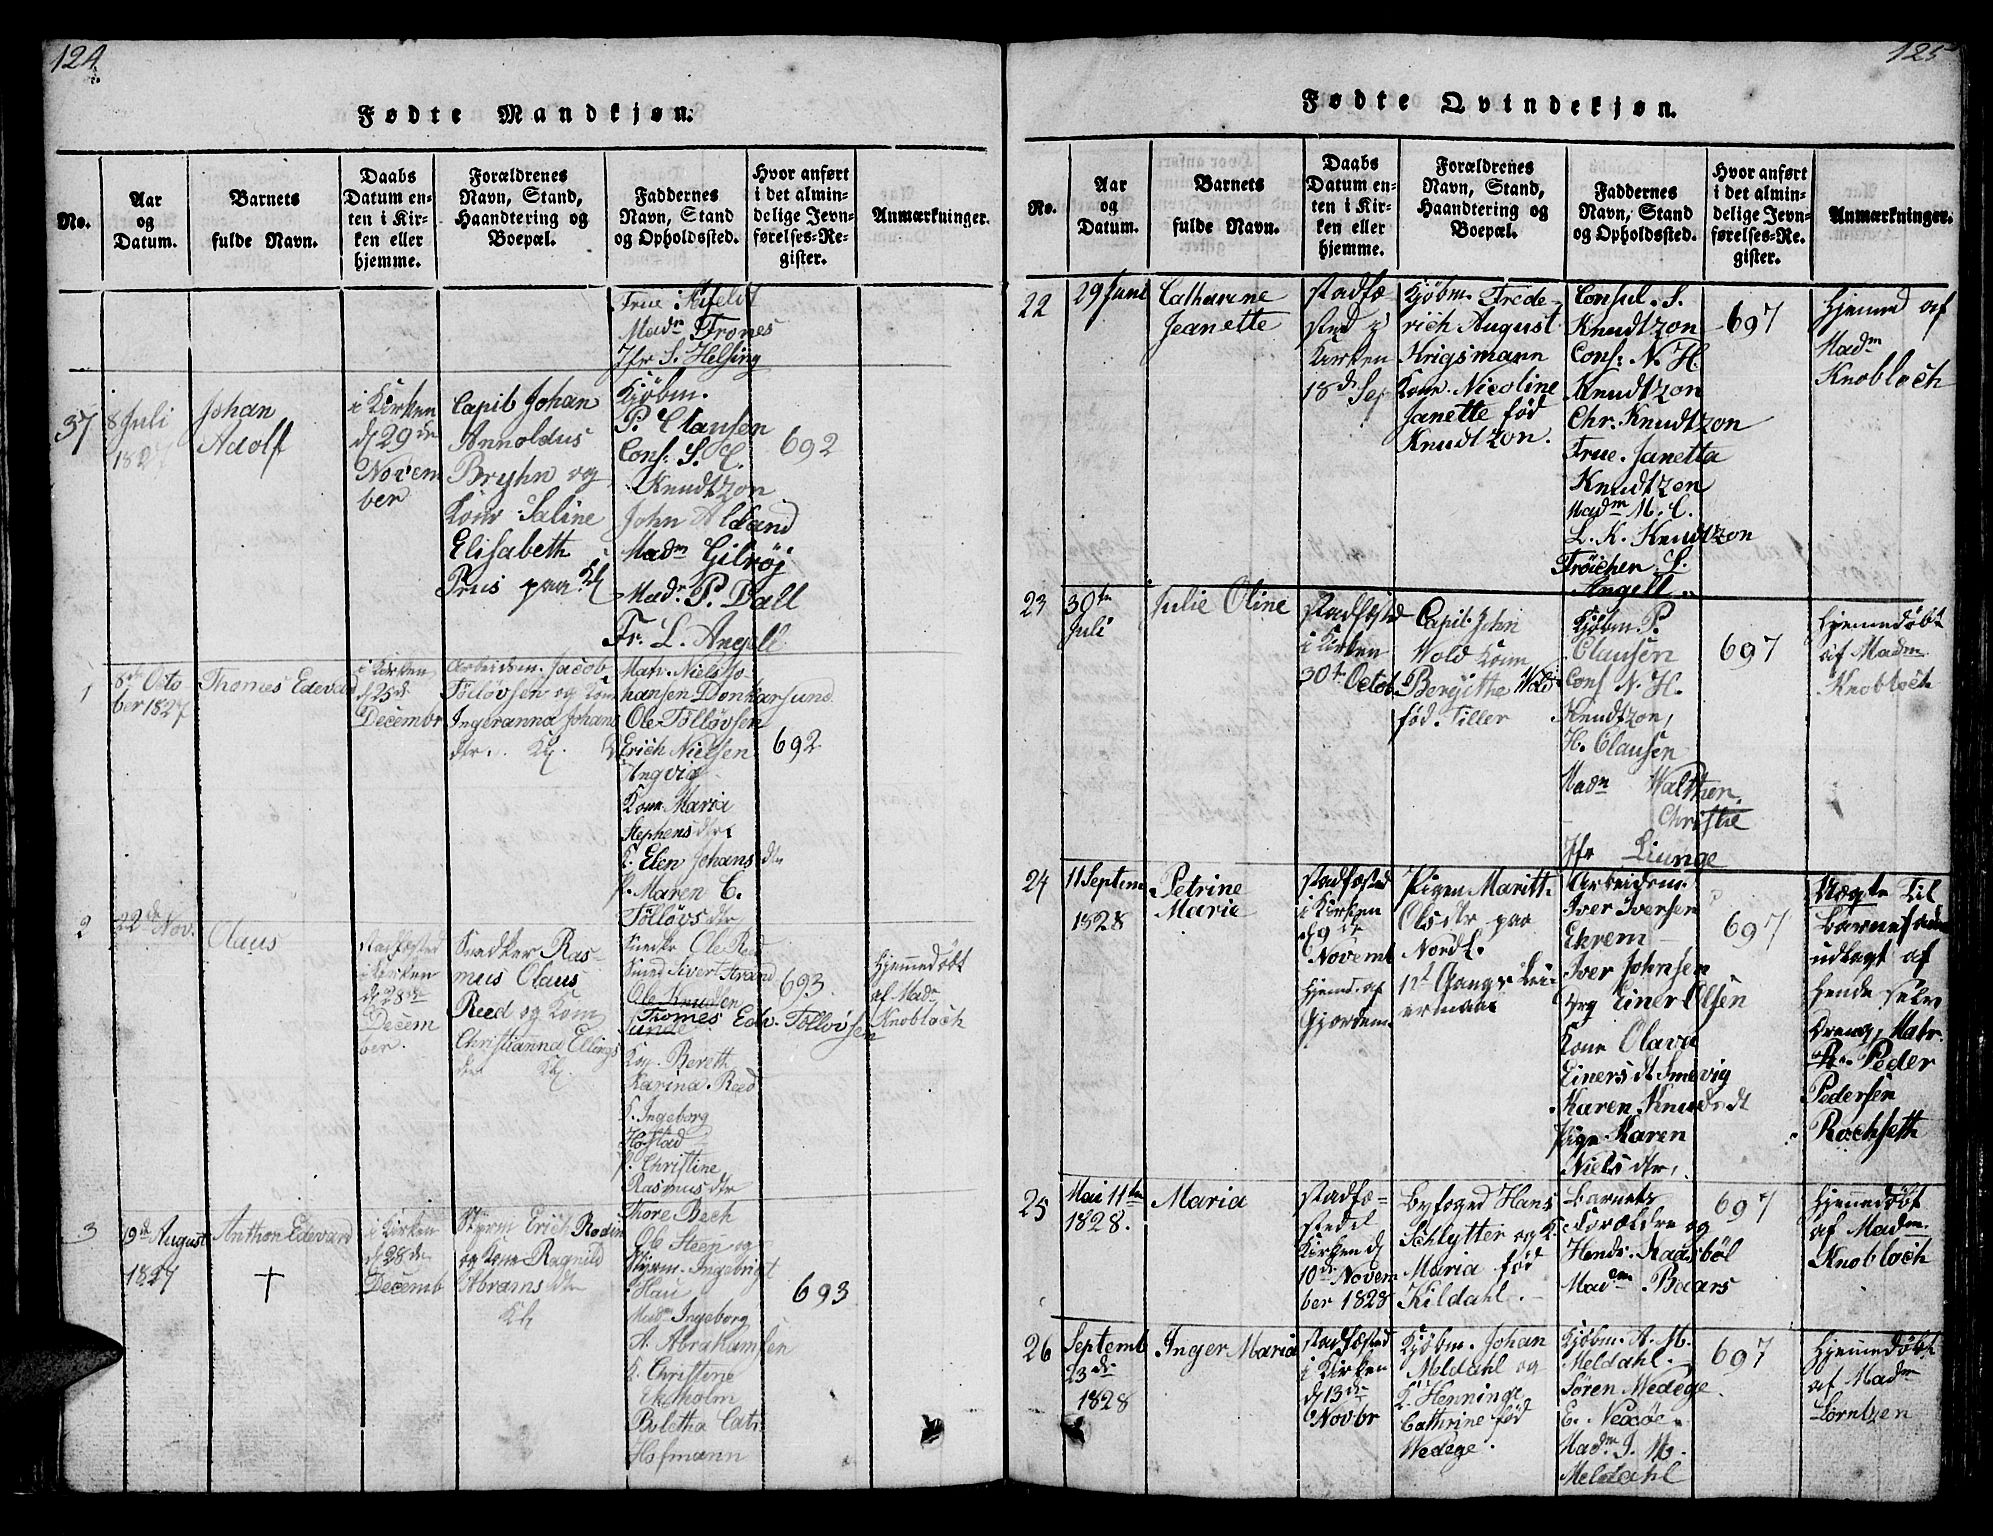 124
Fødte Mandkjøn.
No.
Aar
og
Datum.
Barnets
fulde Navn.
Daabs
Datum en-
ten i Kir-
ken eller
hjemme.
Forældrenes
Navn, Stand,
Haandtering og
Boepæl.
Faddernes
Navn, Stand
og Opholdssted.
Hvor anført
i det almin-
delige Jevn-
førelses-Re-
gister.
Anmærkninger.
Madm Frones
Jfr S. Helsing
37
8 Juli
1827
Johan
Adolf
i Kirken
d 29de
Novem
ber
Capit Johan
Arnoldus
Bryhn og
Kone Saline
Elisabeth
Prus paa
Kjøbm.
P. Clausen
Cons: S. C.
Knudtzon
John
Madm Gilrøj
Madm P. Dall
Fr. L. Angell
692
1
8de Octo
ber 1827
Thomes Edevard
i Kirken
d 25de
Decembr
Arbeidsm. Jacob
Tølløvsen og Kone
Ingeranna Johans
dtr.
Matr. Niels Jo
hansen
Ole Tølløvsen
Erich Nielsen
Ingvig
Kone Maria
Stephensdtr
K. Elen Johansdtr
P. Maren C.
Tølløvsdtr
692
2
22de Nov.
Claus
Stadfæsted
i Kirken
d 28de
Decem
ber.
Snedker Ras-
mus Claus
Reed og Kone
Christianna Ellings
dtr
Snedkr Ole Reed
Smed Sivert Strand
Ole Knudsen
Thomes Edv. Tølløvsen
Berett
Karina Reed
K. Ingeborg
Hofstad
P. Christine
Rasmusdtr
693
Hjemmedøbt
af Madm
Knobloch
3
19de August
1827
Anthon Edevard
i Kirken
d 28de
Decemb
Styrm Erich Rodin
og Kone Ragnild
Abramsdtr
Thore Bech
Ole Steen og
Styrm. Ingebrigt
Hau
Madm Ingeborg
A. Abrahamsen
K. Christine
Ekeholm
Boletha Catr.
Hofmann
693
125
Fødte Qvindekjøn.
No.
Aar
og
Datum.
Barnets
fulde Navn.
Daabs
Datum en-
ten i Kir-
ken eller
hjemme.
Forældrenes
Navn, Stand,
Haandtering og
Boepæl.
Faddernes
Navn, Stand
og Opholdssted.
Hvor anført
i det almin-
delige Jevn-
førelses-Re-
gister.
Anmærkninger.
22
29 Juni
Catharine
Jeanette
Stadfæ-
sted i
Kirken
18de Sep
Kjøbm. Frede-
rich August
Krigsmann
Kone Nicoline
Janette fød
Knudtzon.
Consul. S.
Knudtzon
Cons: N. H.
Knudtzon
Chr. Knudtzon
Frue Janetta
Knudtzon
Madm M. C.
L. K. Knudtzon
Frøichen L.
Angell.
697
Hjemmed af
Madm
Knobloch
23
30te
Juli
Julie Oline
Stadfæsted
i Kirken
30te Octob
Capit. John
Wold Kone
Bergithe Wold
fød Tiller
Kjøbm P.
Clausen
Cons N. H.
Knudtzon,
H. Clausen
Madm Walther
Christie
Jfr Liunge
697
Hjemmedøbt
af Madm
Knobloch
24
11 Septem
1828
Petrine
Maria
Stadfæsted
i Kirken
d 9de
Novemb
Hjemd. af
Gjordem.
Pigen Maritt
Olsdtr paa
Nordl.
1st Gangs Lei-
ermaal
Arbeidsm.
Iver Iversen
Ekrem
Iver Johnsen
Drg Einer Olsen
Kone Olava
Einersdt Smevig
Karen Knudsdt
Pige Karen
Nielsdtr,
697
Uægte Til
Barnefader
udlagt af
hende selv
Dreng, Matr.
Peder
Pedersen
Rochseth
25
Mai 11te
1828.
Maria
Stadfæ-
sted i
Kirken d
10de Novem
ber 1828
Byfoged Hans
Schlytter og K.
Maria fød
Kildahl.
Barnets
Forældre og
Hendr. Kaasbøl
Madm Boears
697
Hjemmedøbt
af Madm
Knobloch
26
Septemb
23de
1828
Inger Maria
Stadfæsted
i Kirken
d 13de
Novbr
Kjøbm. Johan
Meldahl og
K. Henninge
Cathrine fød
Wedege.
Kjøbm. A. M.
Meldahl.
Søren Wedege.
E. Nexøe
Madm J. M.
Meldahl
697
Hjemmedøbt
af Madm
Lorntzen